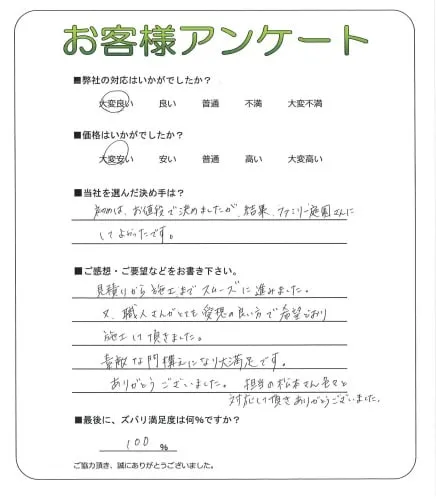 お客様アンケート
■弊社の対応はいかがでしたか?
大変良い 良い 普通 不満 大変不満
■価格はいかがでしたか?
大変安い 安い 普通 高い 大変高い
■当社を選んだ決め手は?
初めは、お値段で決めましたが、結果、ファミリー庭園さんに
してよかったです。
■ご感想・ご要望などをお書き下さい。
見積りから施工までスムーズに進みました。
又、職人さんがとても愛想の良い方で希望どおり
施工して頂きました。
素敵な門構えになり大満足です。
ありがとうございました。 担当の松本さん色々と
対応して頂きありがとうございました。
■最後に、ズバリ満足度は何%ですか?
100 %
ご協力頂き、誠にありがとうございました。